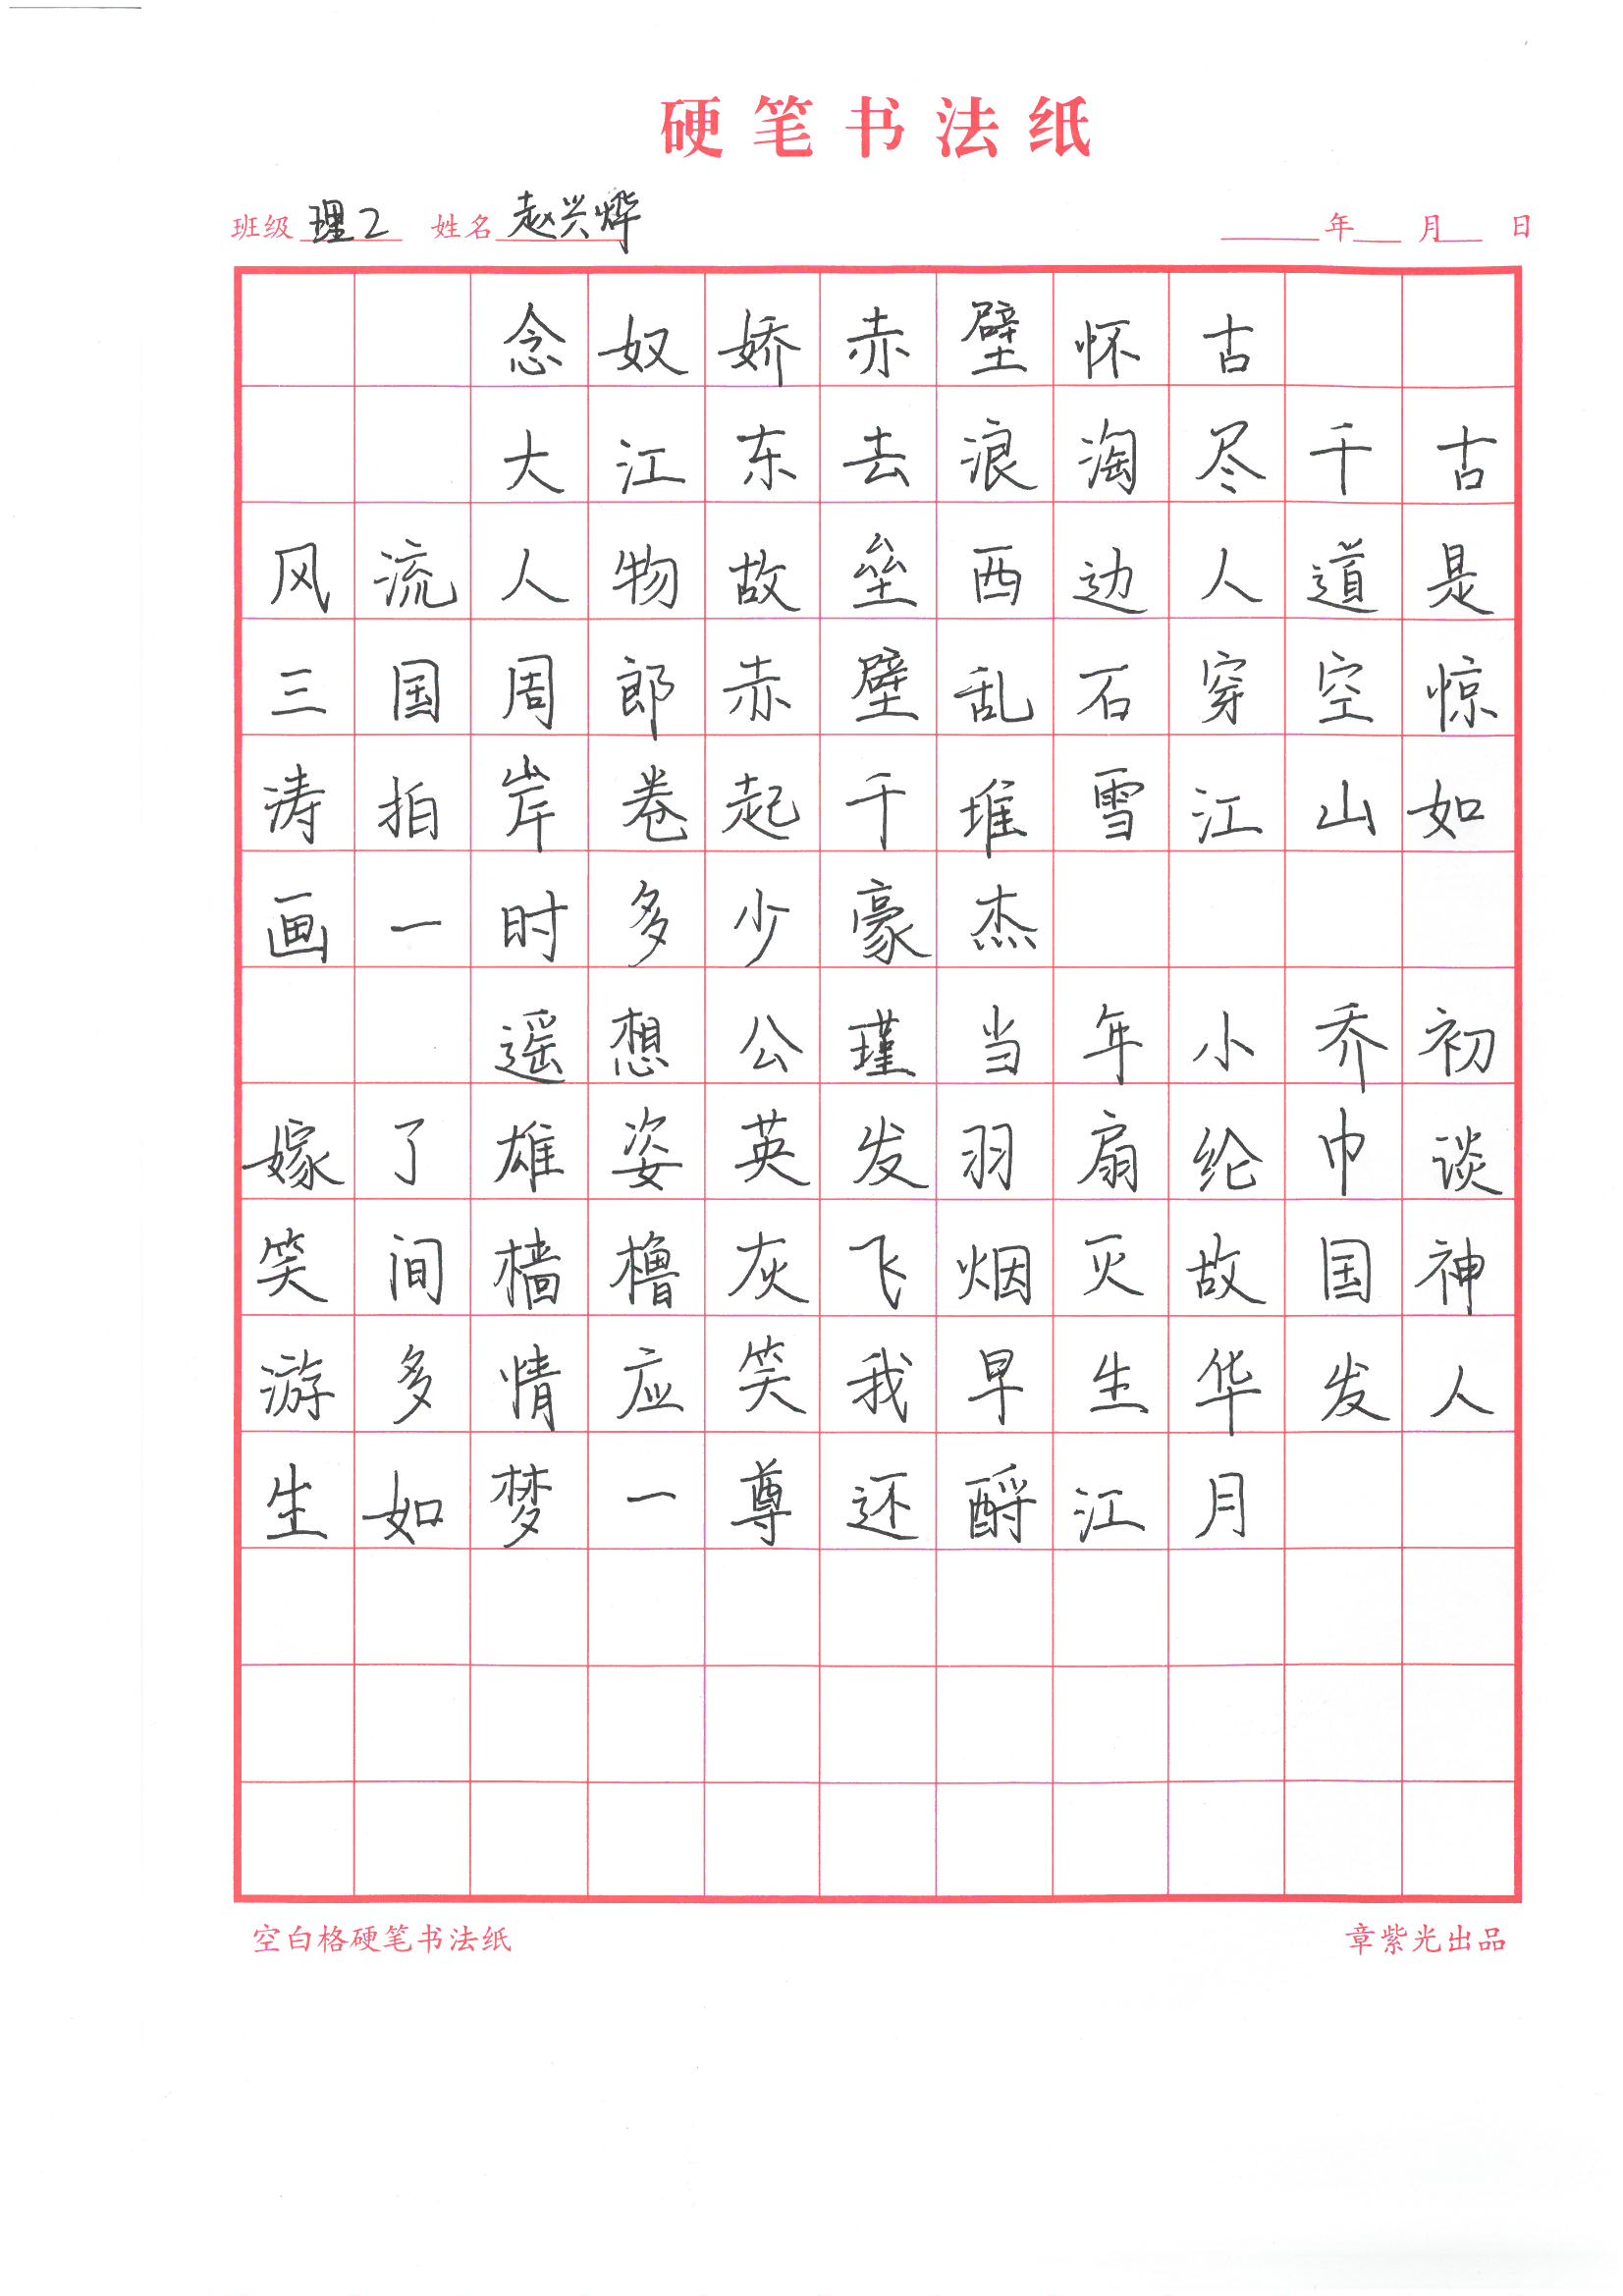 硬笔书法纸
班级 理2 姓名 赵兴烨 年 月 日
念奴娇赤壁怀古
大江东去浪淘尽千古
风流人物故垒西边人道是
三国周郎赤壁乱石穿空惊
涛拍岸卷起千堆雪江山如
画一时多少豪杰
遥想公瑾当年小乔初
嫁了雄姿英发羽扇纶巾谈
笑间樯橹灰飞烟灭故国神
游多情应笑我早生华发人
生如梦一尊还酹江月
空白格硬笔书法纸 章紫光出品